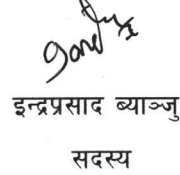 इन्द्रप्रसाद ब्याञ्जु
सदस्य